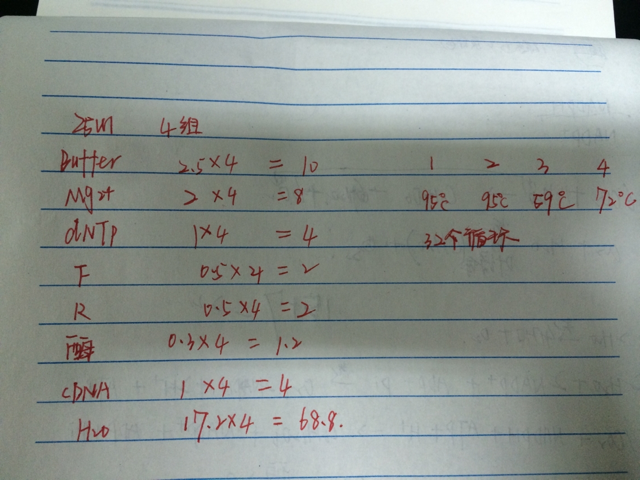 25ul 4组
Buffer 2.5×4 = 10 1 2 3 4
Mg2+ 2×4 = 8 95℃ 95℃ 59℃ 72℃
dNTP 1×4 = 4 32个循环
F 0.5×4 = 2
R 0.5×4 = 2
酶 0.3×4 = 1.2
cDNA 1×4 = 4
H2O 17.2×4 = 68.8.